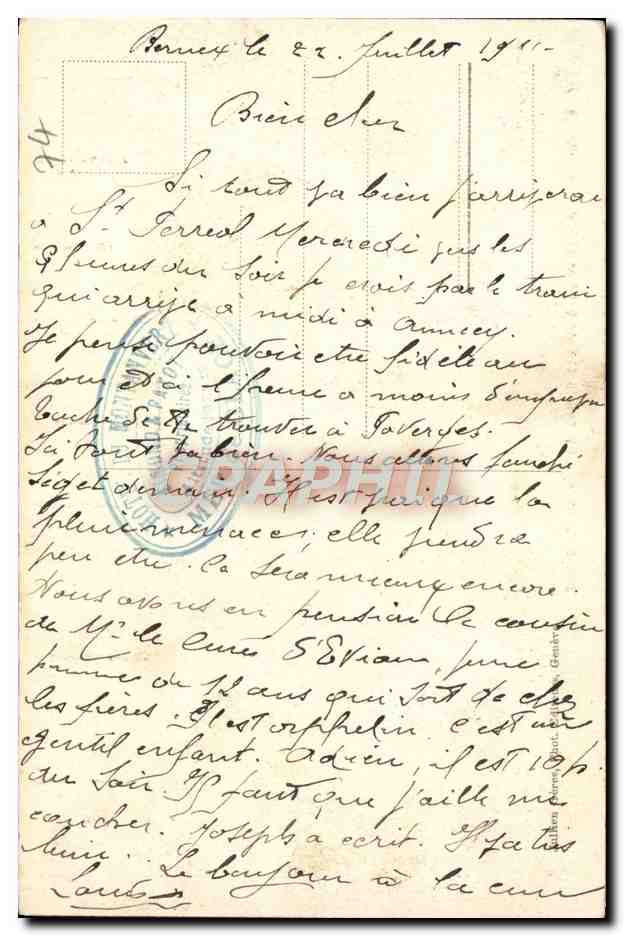 Bernex le 22 Juillet 1911
74
Bien cher
Si tout va bien j'arriverai
à St Ferréol Mercredi vers les
heures du soir je crois par le train
qui arrive à midi à Annecy.
Je pense pouvoir être fidèle au
jour et à l'heure a moins d'
de trouver à Faverges.
Ici tout va bien. Nous allons fauché
demain. Il est vrai que la
pluie menace, elle
peu être. Ca sera mieux encore.
Nous avons en pension le cousin
de Mr le Curé d'Evian, jeune
de 12 ans qui sort de chez
les frères. Il est orphelin c'est un
gentil enfant. Adieu, il est 10 h.
du soir. Il faut que j'aille me
coucher. Joseph a ecrit. Il va très
bien. Le bonjour à la cure
Louis
CPAPHIL
Jullien frères, phot. Editeurs, Genève